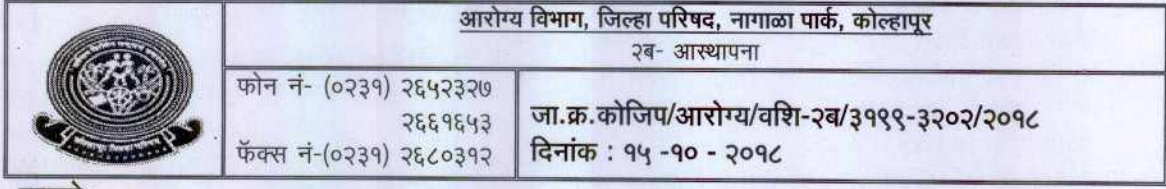 आरोग्य विभाग, जिल्हा परिषद, नागाळा पार्क, कोल्हापूर
२ब- आस्थापना
फोन नं- (०२३१) २६५२३२७
२६६१६५३
फॅक्स नं-(०२३१) २६८०३१२
जा.क्र.कोजिप/आरोग्य/वशि-२ब/३१९९-३२०२/२०१८
दिनांक : १५ -१० - २०१८